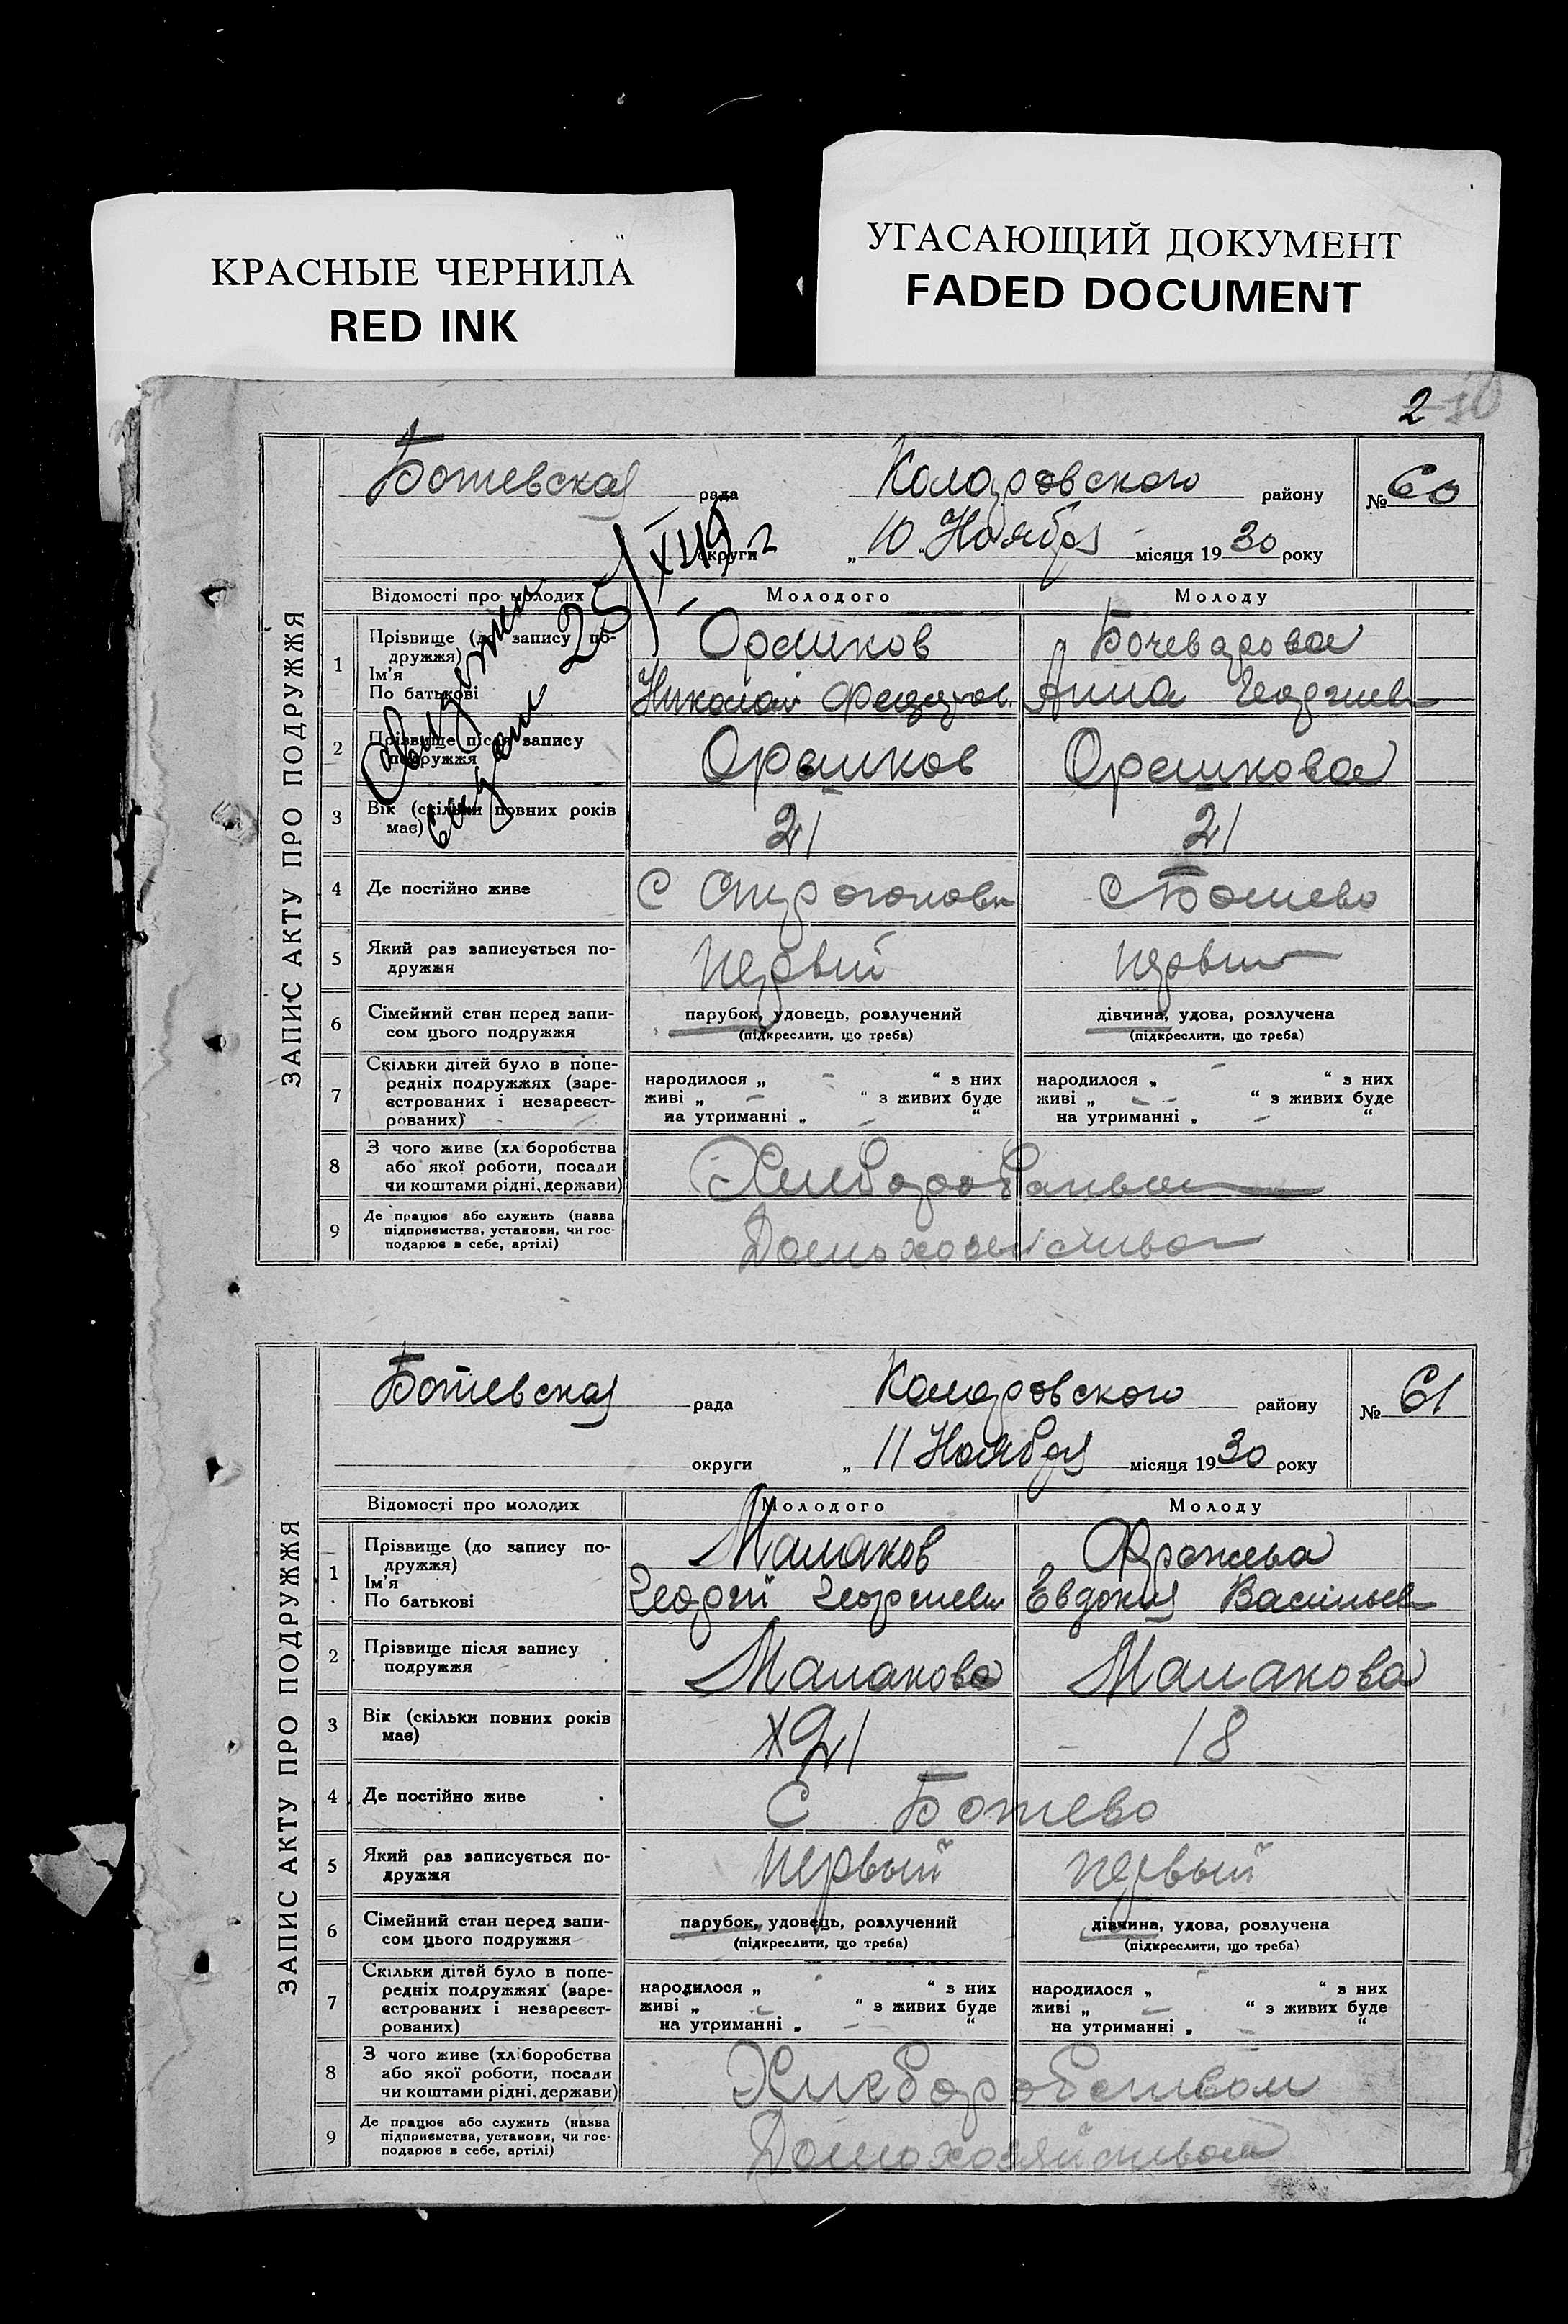 КРАСНЫЕ ЧЕРНИЛА
RED INK
УГАСАЮЩИЙ ДОКУМЕНТ
FADED DOCUMENT
2
ЗАПИС АКТУ ПРО ПОДРУЖЖЯ
Ботевская рада Коларовского району № 60
округи „ 10 Ноября місяця 1930 року
Свидетел
25/XII 49 г
Відомості про молодих Молодого Молоду
1 Прізвище (до запису подружжя) Орешков Бочеварова
Ім'я
По батькові Николай Федоров Анна Георгиев
2 Прізвище після запису подружжя Орешков Орешкова
3 Вік (скільки повних років має) 21 21
4 Де постійно живе С Строгоновк С Ботево
5 Який раз записується подружжя первый первый
6 Сімейний стан перед записом цього подружжя парубок, удовець, розлучений дівчина, удова, розлучена
(підкреслити, що треба) (підкреслити, що треба)
7 Скільки дітей було в попередніх подружжях (зареєстрованих і незареєстрованих)
народилося „ - “ з них народилося „ - “ з них
живі „ - “ з живих буде живі „ - “ з живих буде
на утриманні „ - “ на утриманні „ - “
8 З чого живе (хліборобства або якої роботи, посади чи коштами рідні, держави)
9 Де працює або служить (назва підприємства, установи, чи господарює в себе, артілі) Домохозяйство
ЗАПИС АКТУ ПРО ПОДРУЖЖЯ
Ботевская рада Коларовского району № 61
округи „ 11 Ноября місяця 1930 року
Відомості про молодих Молодого Молоду
1 Прізвище (до запису подружжя) Малаков
Ім'я
По батькові Георгий Георгиев Евдокия Васильев
2 Прізвище після запису подружжя Малакова Малакова
3 Вік (скільки повних років має) 21 18
4 Де постійно живе С Ботево
5 Який раз записується подружжя первый первый
6 Сімейний стан перед записом цього подружжя парубок, удовець, розлучений дівчина, удова, розлучена
(підкреслити, що треба) (підкреслити, що треба)
7 Скільки дітей було в попередніх подружжях (зареєстрованих і незареєстрованих)
народилося „ - “ з них народилося „ - “ з них
живі „ - “ з живих буде живі „ - “ з живих буде
на утриманні „ - “ на утриманні „ - “
8 З чого живе (хліборобства або якої роботи, посади чи коштами рідні, держави) Хлеборобством
9 Де працює або служить (назва підприємства, установи, чи господарює в себе, артілі) Домохозяйством